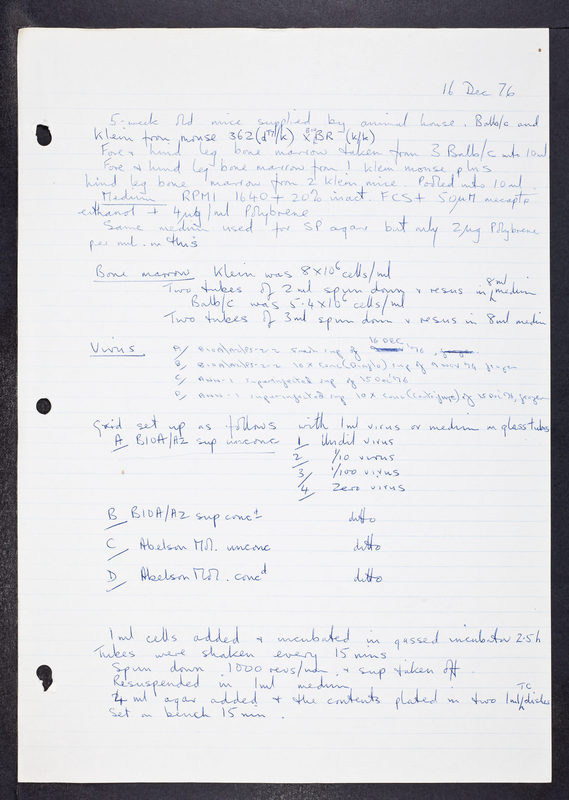 16 Dec 76
5-week old mice supplied by animal house. Balb/c and
Klein from mouse 362 (/k) x BR (k/k)
Fore & hind leg bone marrow taken from 3 Balb/c into 10ml
Fore & hind leg bone marrow from 1 Klein mouse plus
hind leg bone marrow from 2 Klein mice. Pooled into 10ml.
Medium RPMI 1640 + 20% inact. FCS + 50μM mercapto
ethanol + 4μg/ml Polybrene
Same medium used for SP agar but only 2μg Polybrene
per ml. in this
Bone marrow Klein was 8x10⁶ cells/ml
Two tubes of 2ml spun down & resus in 8ml medium
Balb/c was 5.4x10⁶ cells/ml
Two tubes of 3ml spun down & resus in 8ml medium
Virus A/ sup of 16 DEC '76
B/ 10x conc of frozen
C/ superinfected sup of 15 Dec '76
D/ superinfected sup 10x conc of 15 Dec '76, frozen
Grid set up as follows with 1ml virus or medium in glass tubes
A B10A/A2 sup unconc 1 Undil virus
2 1/10 virus
3 1/100 virus
4 Zero virus
B B10A/A2 sup concd ditto
C Abelson Mol. unconc ditto
D Abelson Mol. concd ditto
1ml cells added & incubated in gassed incubator 2.5h
Tubes were shaken every 15 mins
Spun down 1000 revs/min & sup taken off.
Resuspended in 1ml medium
4 ml agar added & the contents plated in two 1ml TC dishes
Set on bench 15 min.